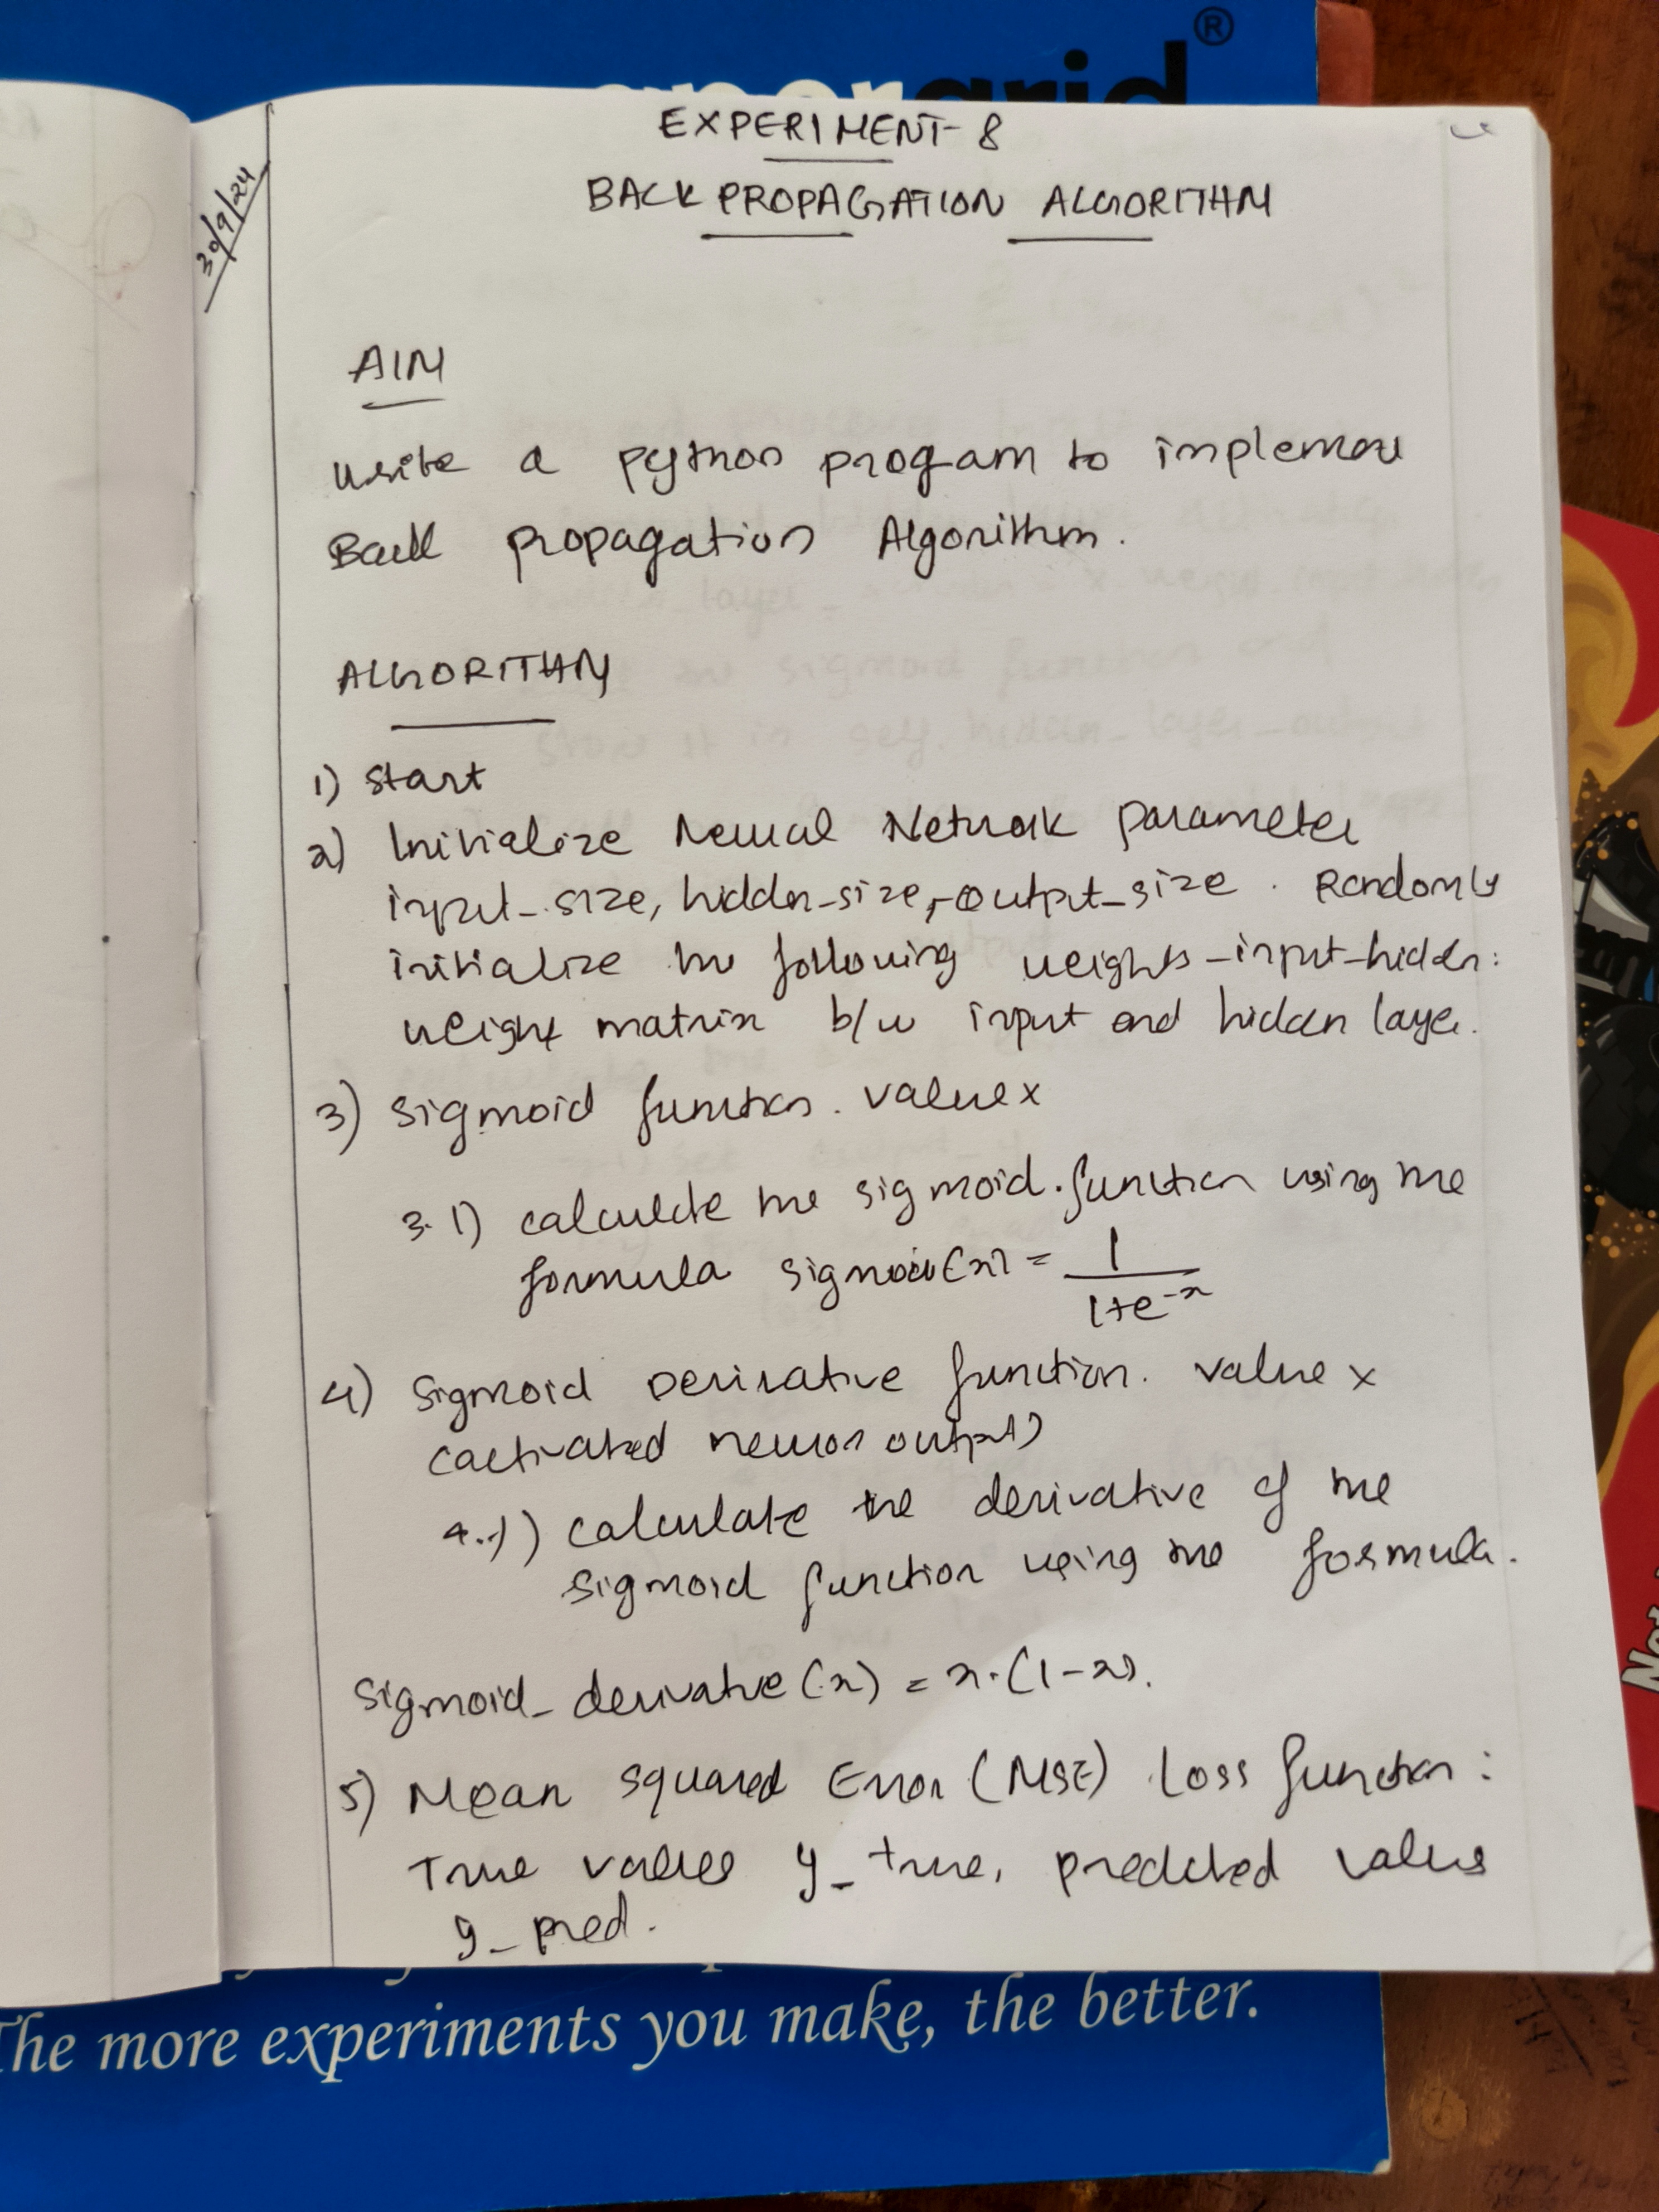 ®
EXPERIMENT-8
30/9/24
BACK PROPAGATION ALGORITHM
AIM
Write a python progam to implement
Back propagation Algorithm.
ALGORITHM
1) Start
2) Initialize Neural Network parameter
input_size, hidden_size, output_size. Randomly
initialize the following weights_input_hidden:
weight matrix b/w input and hidden layer.
3) Sigmoid function. value x
3.1) calculate the sigmoid function using the
formula sigmoid(x) = 1/(1+e^-x)
4) Sigmoid Derivative function. value x
(activated neuron output)
4.1) calculate the derivative of the
sigmoid function using the formula.
Sigmoid_derivative(x) = x.(1-x).
5) Mean squared Error (MSE) Loss function:
True values y_true, predicted values
y_pred.
The more experiments you make, the better.